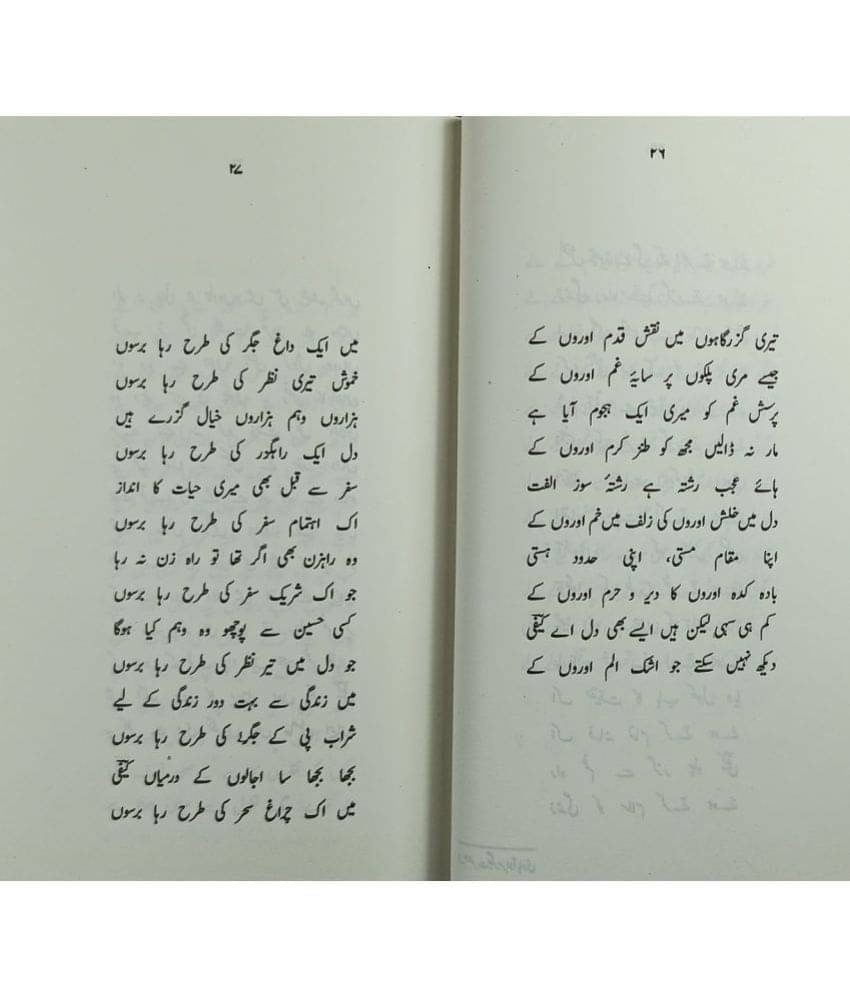 ۲۶
تیری گزرگاہوں میں نقش قدم اوروں کے
جیسے مری پلکوں پر سایۂ غم اوروں کے
پرسش غم کو میری ایک ہجوم آیا ہے
مار نہ ڈالیں مجھ کو طنز کرم اوروں کے
ہائے عجب رشتہ ہے رشتۂ سوز الفت
دل میں خلش اوروں کی زلف میں خم اوروں کے
اپنا مقام مستی، اپنی حدود ہستی
بادہ کدہ اوروں کا دیر و حرم اوروں کے
کم ہی سہی لیکن ہیں ایسے بھی دل اے کیفیؔ
دیکھ نہیں سکتے جو اشک الم اوروں کے
۲۷
میں ایک داغ جگر کی طرح رہا برسوں
خموش تیری نظر کی طرح رہا برسوں
ہزاروں وہم ہزاروں خیال گزرے ہیں
دل ایک راہگور کی طرح رہا برسوں
سفر سے قبل بھی میری حیات کا انداز
اک اہتمام سفر کی طرح رہا برسوں
وہ راہزن بھی اگر تھا تو راہ زن نہ رہا
جو اک شریک سفر کی طرح رہا برسوں
کسی حسین سے پوچھو وہ وہم کیا ہوگا
جو دل میں تیر نظر کی طرح رہا برسوں
میں زندگی سے بہت دور زندگی کے لیے
شراب پی کے جگرؔ کی طرح رہا برسوں
بجھا بجھا سا اجالوں کے درمیاں کیفیؔ
میں اک چراغ سحر کی طرح رہا برسوں